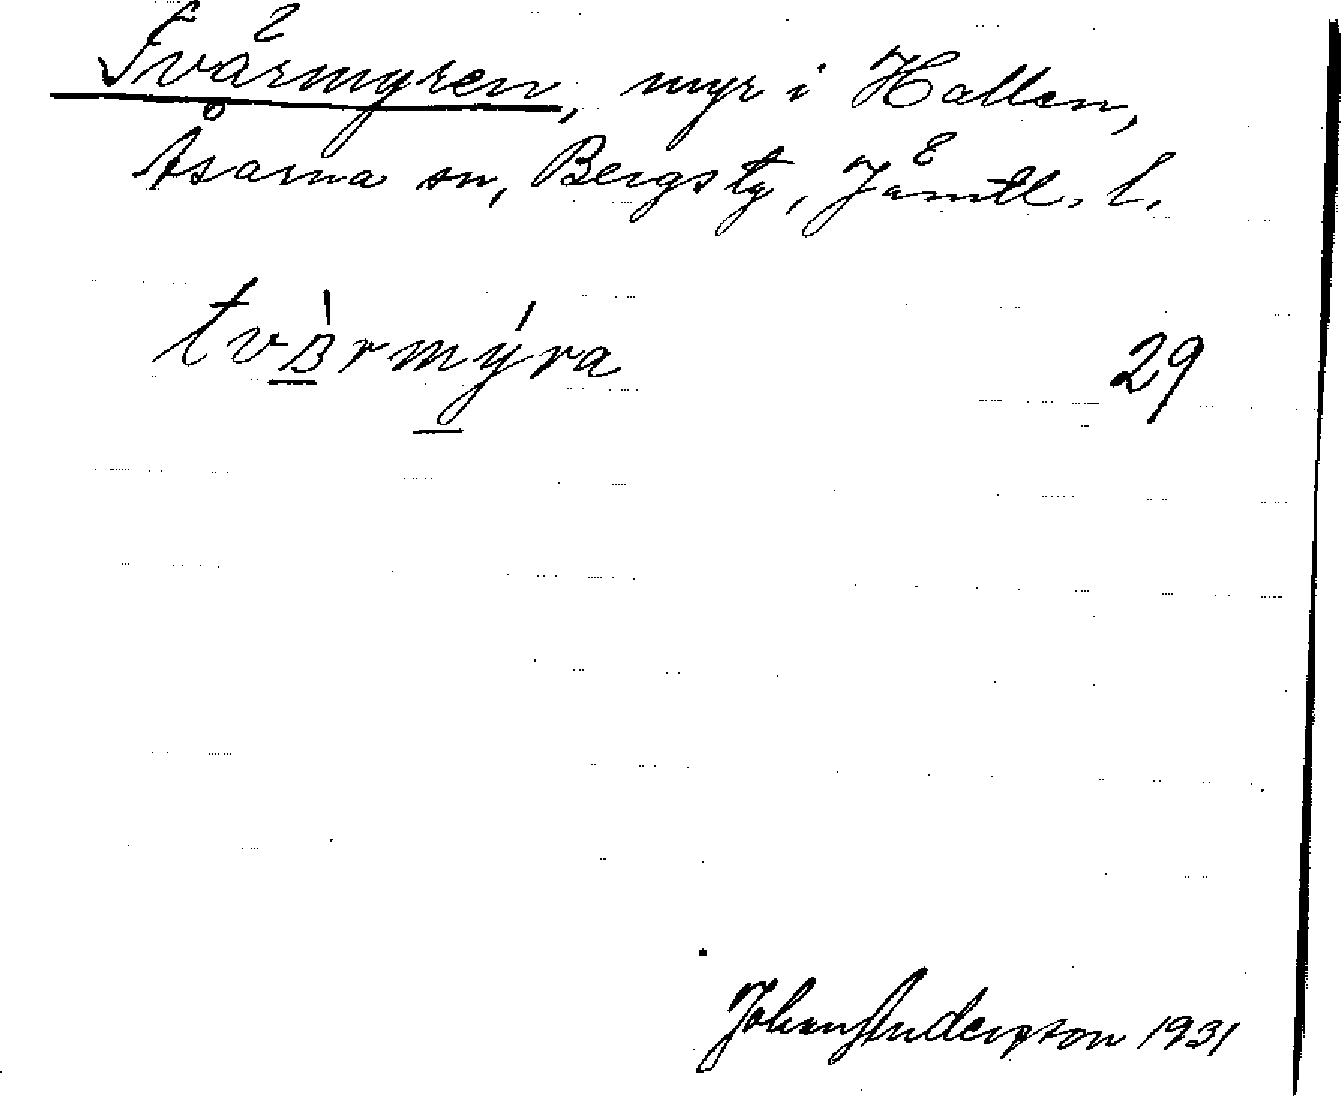 Tvärmyren, myr i Hallen,
Åsarna sn, Bergs tg, Jämtl. l.
tvɑ̀rmýra 29
Johan Anderson 1931